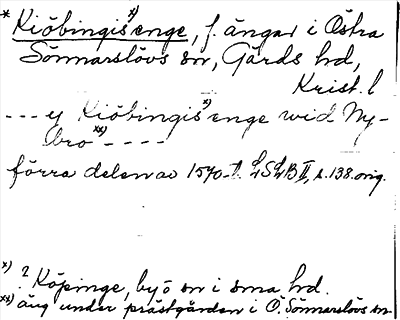 * Kiöbingis*) enge, f. ängar i Östra
Sönnarslövs sn, Gärds hd,
Krist. l
--- y Kiöbingis*) enge wid Ny-
bro**) ----
förra delen av 1570-t. LSLB II, s. 138. orig.
*) ? Köpinge, by o sn i sma hd.
**) äng under prästgården i Ö. Sönnarslövs sn